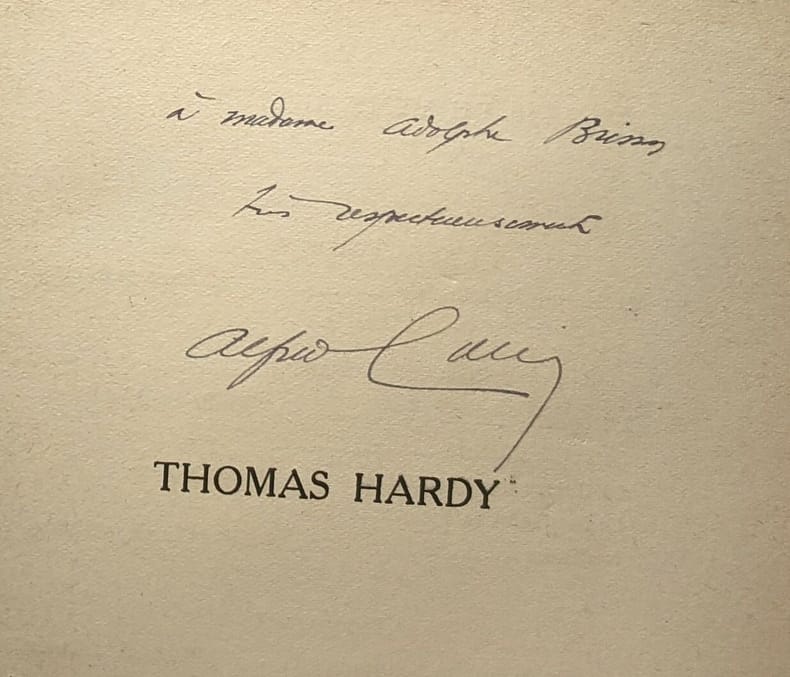 à madame Adolphe Brisson
très respectueusement
Alfred
THOMAS HARDY